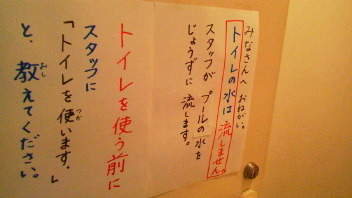 みなさんへ おねがい。
トイレの水は流しません。
スタッフが プールの水を
じょうずに 流します。
トイレを使う前に
スタッフに
「トイレを使います。」
と、教えてください。